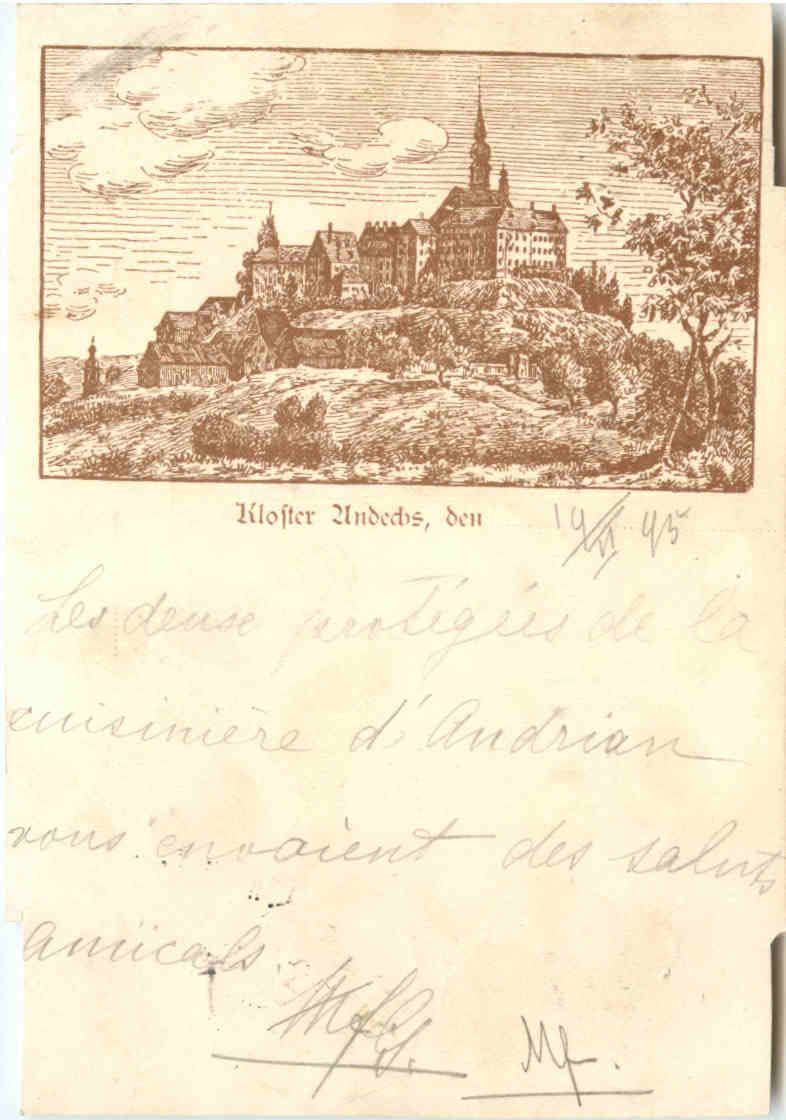 Kloster Andechs, den 19/VI 95
Les deuse protégées de la
cuisinière d'Andrian
vous envoaient des saluts
amicals.